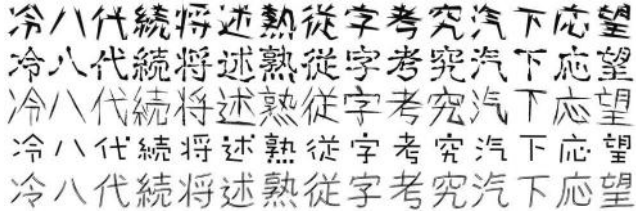 冷八代続将述熟従字考究汽下応望
冷八代続将述熟従字考究汽下応望
冷八代続将述熟従字考究汽下応望
冷八代続将述熟従字考究汽下応望
冷八代続将述熟従字考究汽下応望